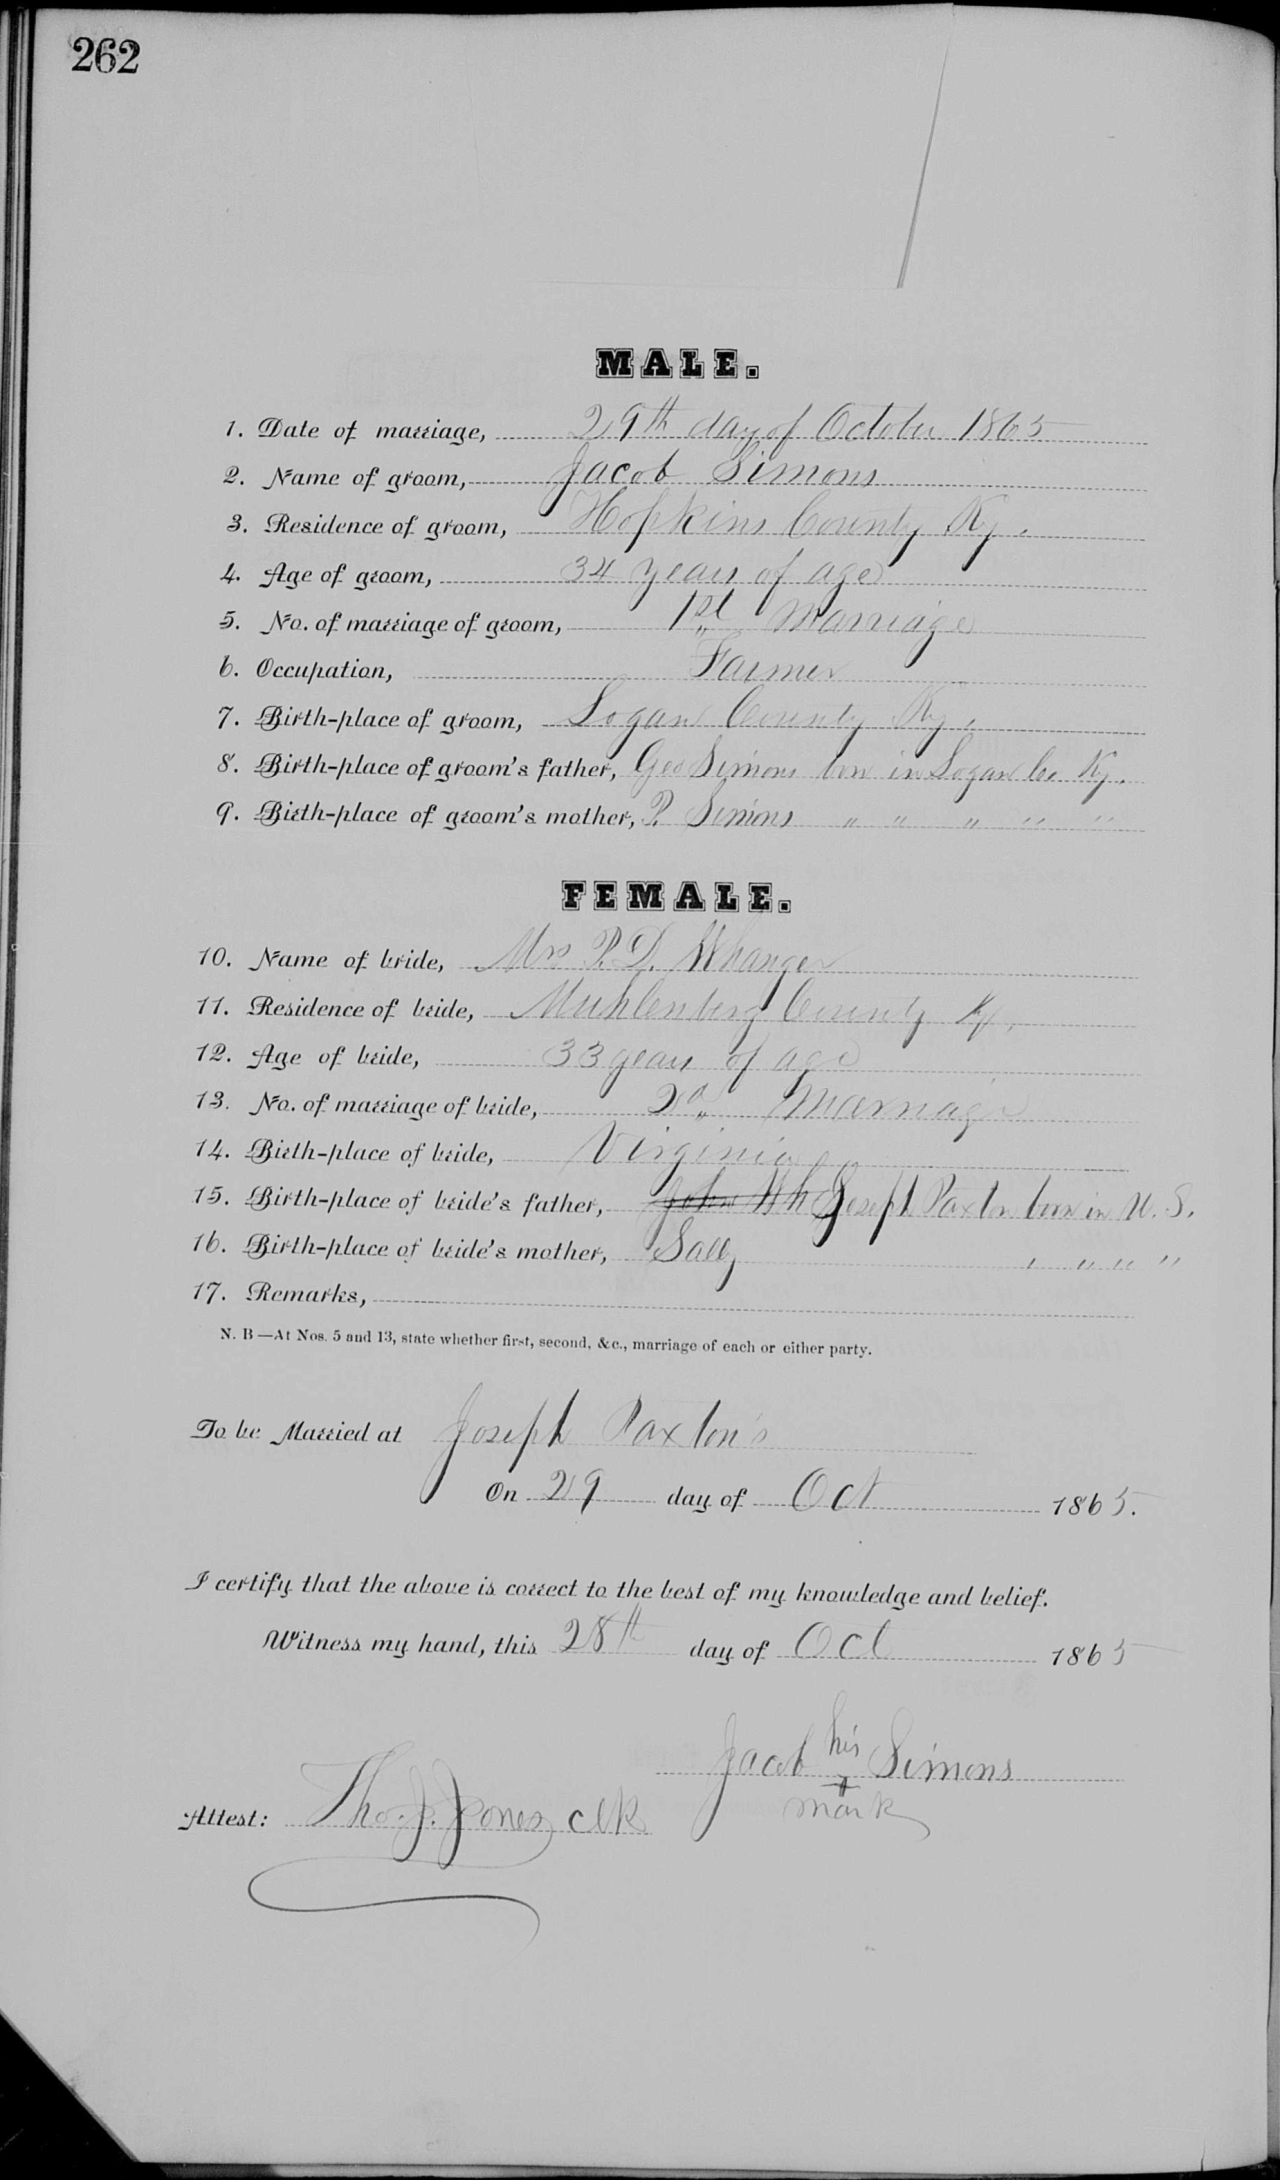 262
MALE.
1. Date of marriage, 29th day of October 1865
2. Name of groom, Jacob Simons
3. Residence of groom, Hopkins County Ky.
4. Age of groom, 34 years of age
5. No. of marriage of groom, 1st Marriage
6. Occupation, Farmer
7. Birth-place of groom, Logan County Ky.
8. Birth-place of groom's father, Geo Simons born in Logan Co Ky.
9. Birth-place of groom's mother, P. Simons " " " " "
FEMALE.
10. Name of bride, Mrs P. D. Whanger
11. Residence of bride, Muhlenberg County Ky.
12. Age of bride, 33 years of age
13. No. of marriage of bride, 2d Marriage
14. Birth-place of bride, Virginia
15. Birth-place of bride's father, John Wh Joseph Paxton born in U. S.
16. Birth-place of bride's mother, Sally " " " "
17. Remarks,
N. B —At Nos. 5 and 13, state whether first, second, &c., marriage of each or either party.
To be Married at Joseph Paxton's
On 29 day of Oct 1865.
I certify that the above is correct to the best of my knowledge and belief.
Witness my hand, this 28th day of Oct 1865
Jacob his Simons
+
mark
Attest: Tho. J. Jones clk